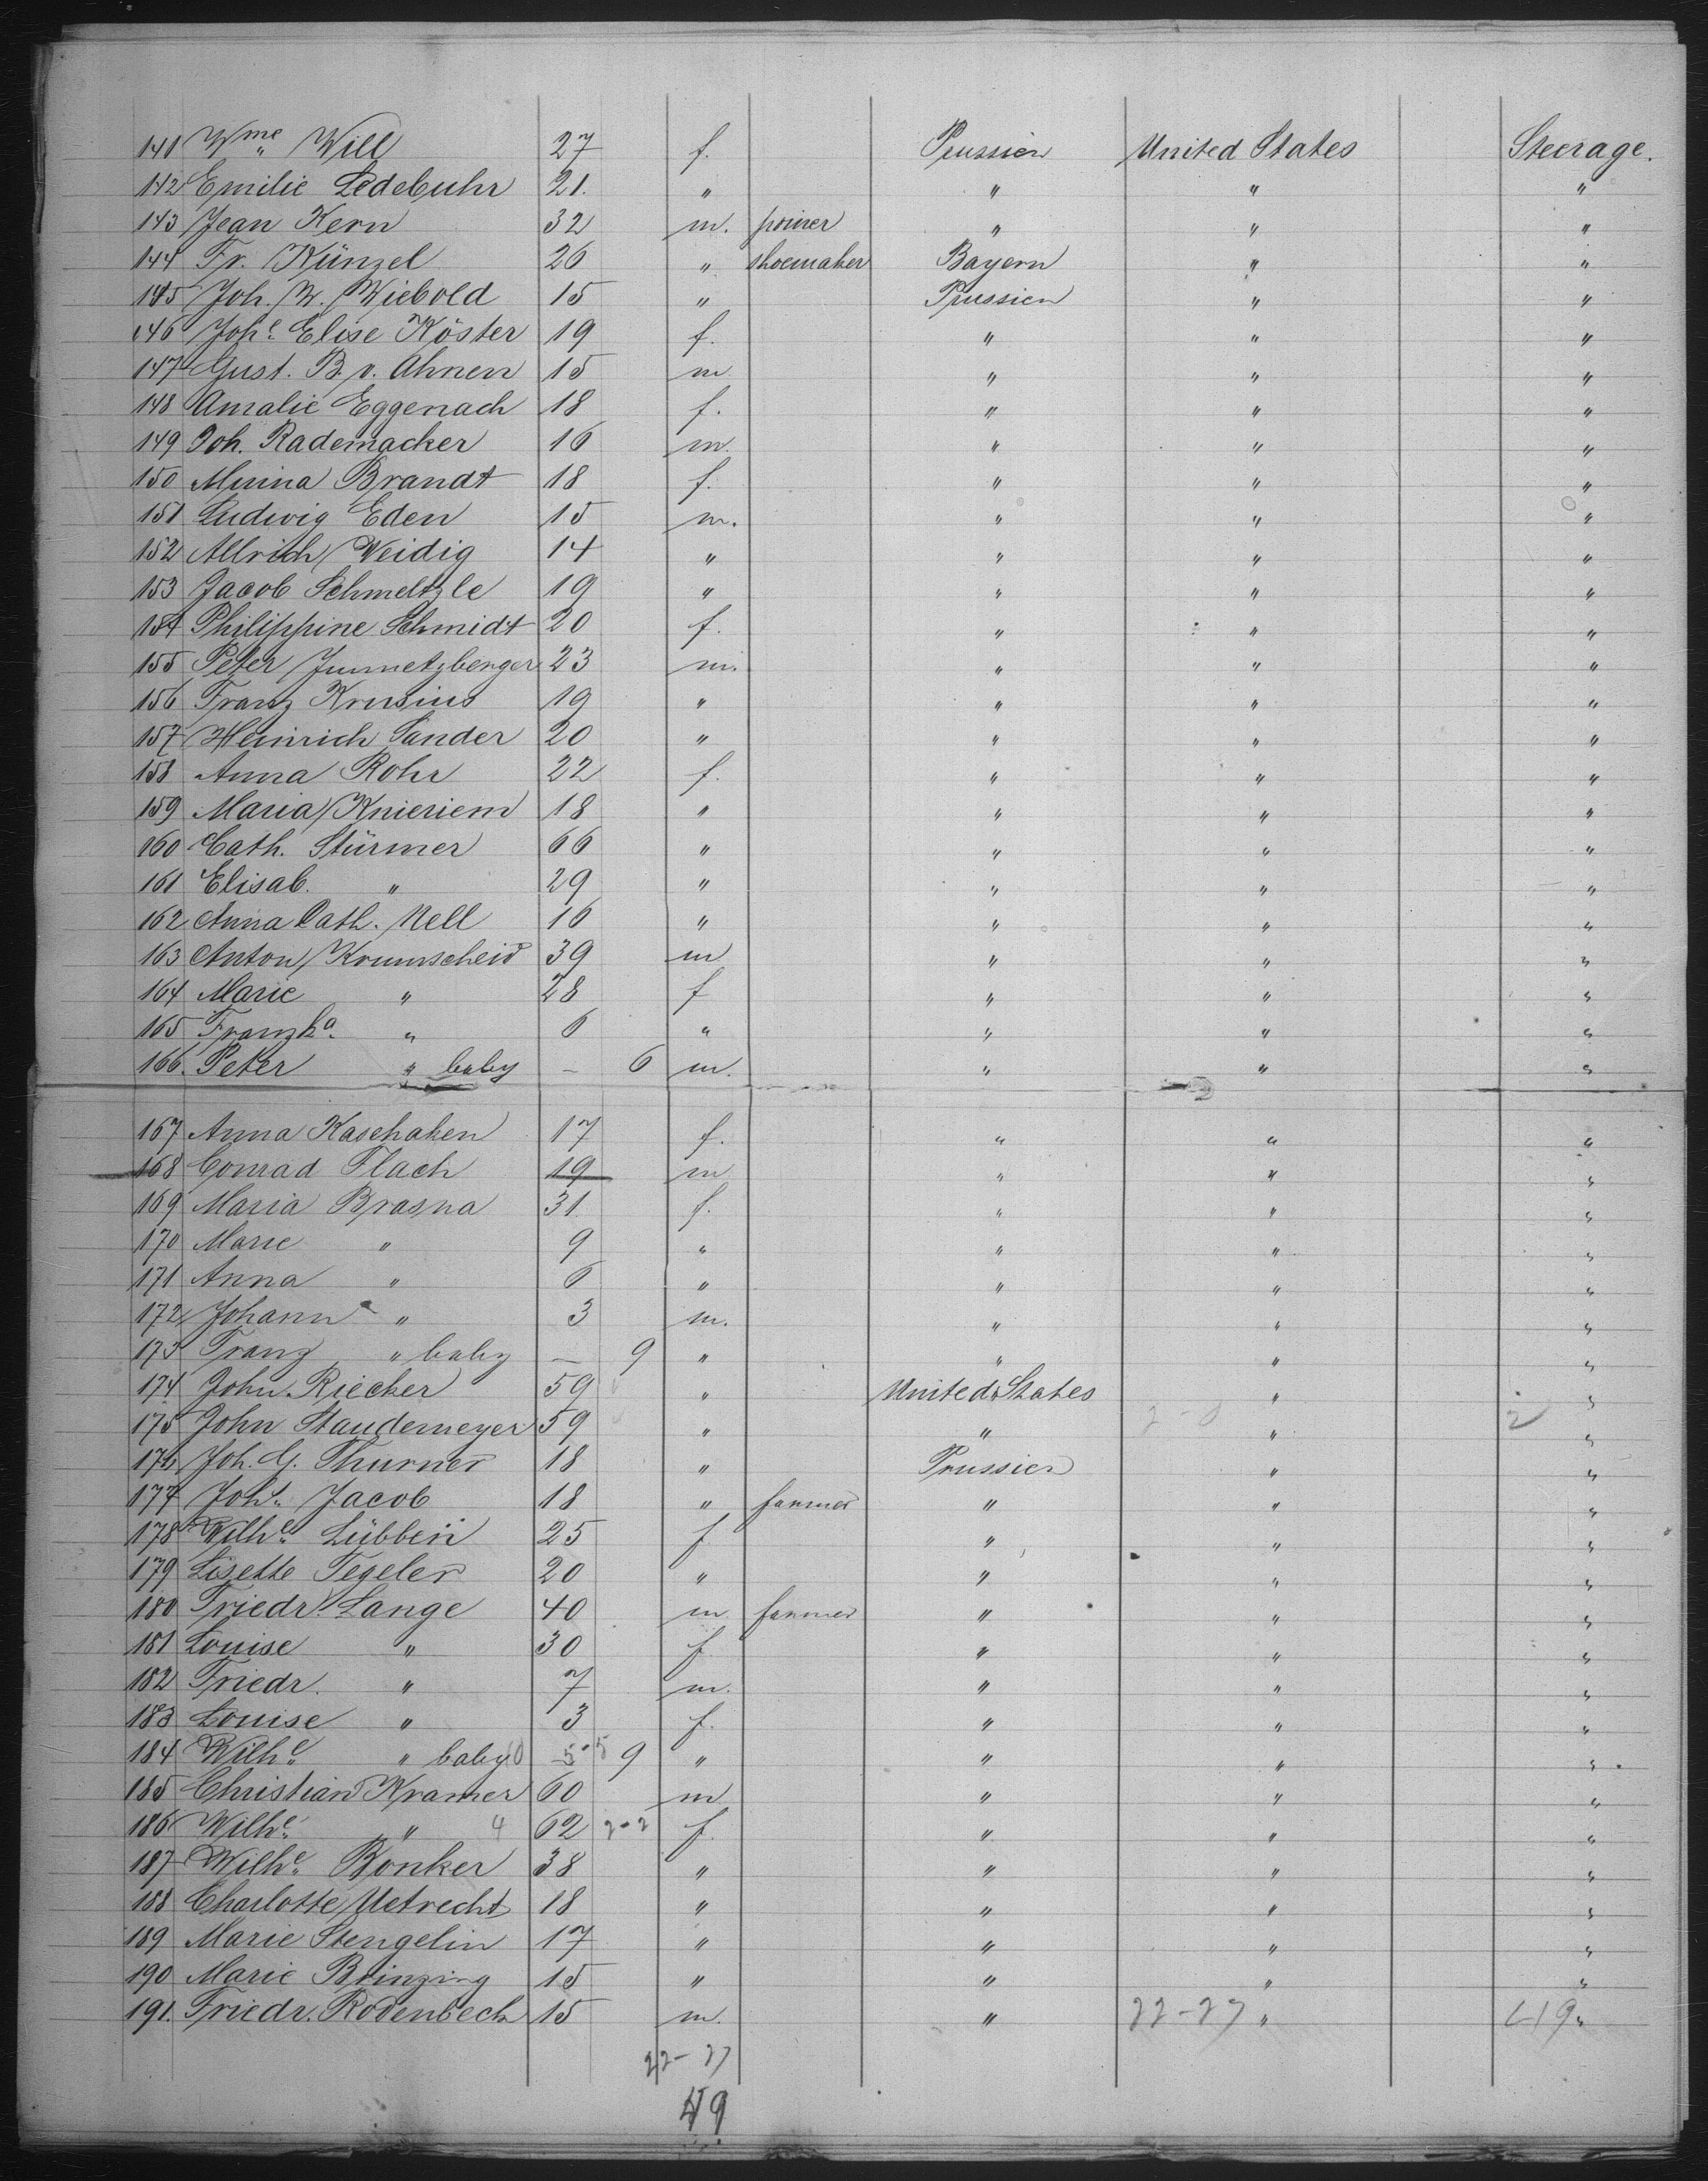 141 Wme Will 27 f. Prussien United States Steerage.
142 Emilie Ledebuhr 21. " " " "
143 Jean Kern 32 m. " " "
144 Fr. Künzel 26 " shoemaker Bayern " "
145 Joh. W. Wiebold 15 " Prussien " "
146 Johe Elise Köster 19 f. " " "
147 Gust. B. v. Ahnen 15 m. " " "
148 Amalie Eggenach 18 f. " " "
149 Joh. Rademacker 16 m. " " "
150 Minna Brandt 18 f. " " "
151 Ludwig Eden 15 m. " " "
152 Allrich Weidig 14 " " " "
153 Jacob Schmeltzle 19 " " " "
154 Philippine Schmidt 20 f. " " "
155 Peter 23 m. " " "
156 Franz Krusius 19 " " " "
157 Heinrich Sander 20 " " " "
158 Anna Rohr 22 f. " " "
159 Maria Knieriem 18 " " " "
160 Cath. Stürmer 66 " " " "
161 Elisab. " 29 " " " "
162 Anna Cath. Nell 16 " " " "
163 Anton Krumscheid 39 m " " "
164 Marie " 28 f " " "
165 Franzka. " 6 " " " "
166. Peter " baby – 6 m. " " "
167 Anna Kasehaken 17 f. " " "
168 Conrad Flach 19 m " " "
169 Maria Brasna 31 f. " " "
170 Marie " 9 " " " "
171 Anna " 6 " " " "
172 Johann " 3 m. " " "
173 Franz " baby – 9 " " " "
174 John. Riecker 59 " United States " "
175 John Staudemeyer 59 " " " 2 "
176 Joh. G. Thurner 18 " Prussien " "
177 Johs. Jacob 18 " farmer " " "
178 Wilhe. Lübben 25 f " " "
179 Lisette Tegeler 20 " " " "
180 Friedr. Lange 40 m farmer " " "
181 Louise " 30 f. " " "
182 Friedr. " 7 m. " " "
183 Louise " 3 f. " " "
184 Wilhe " baby 9 " " " "
185 Christian Kramer 60 m " " "
186 Wilhe. " 4 62 2-2 f. " " "
187 Wilhe. Bonker 38 " " " "
188 Charlotte Uetrecht 18 " " " "
189 Marie Stengelin 17 " " " "
190 Marie Brinzing 15 " " " "
191. Friedr. Rodenbeck 15 m. " 22-27 " 49 "
22-27
49